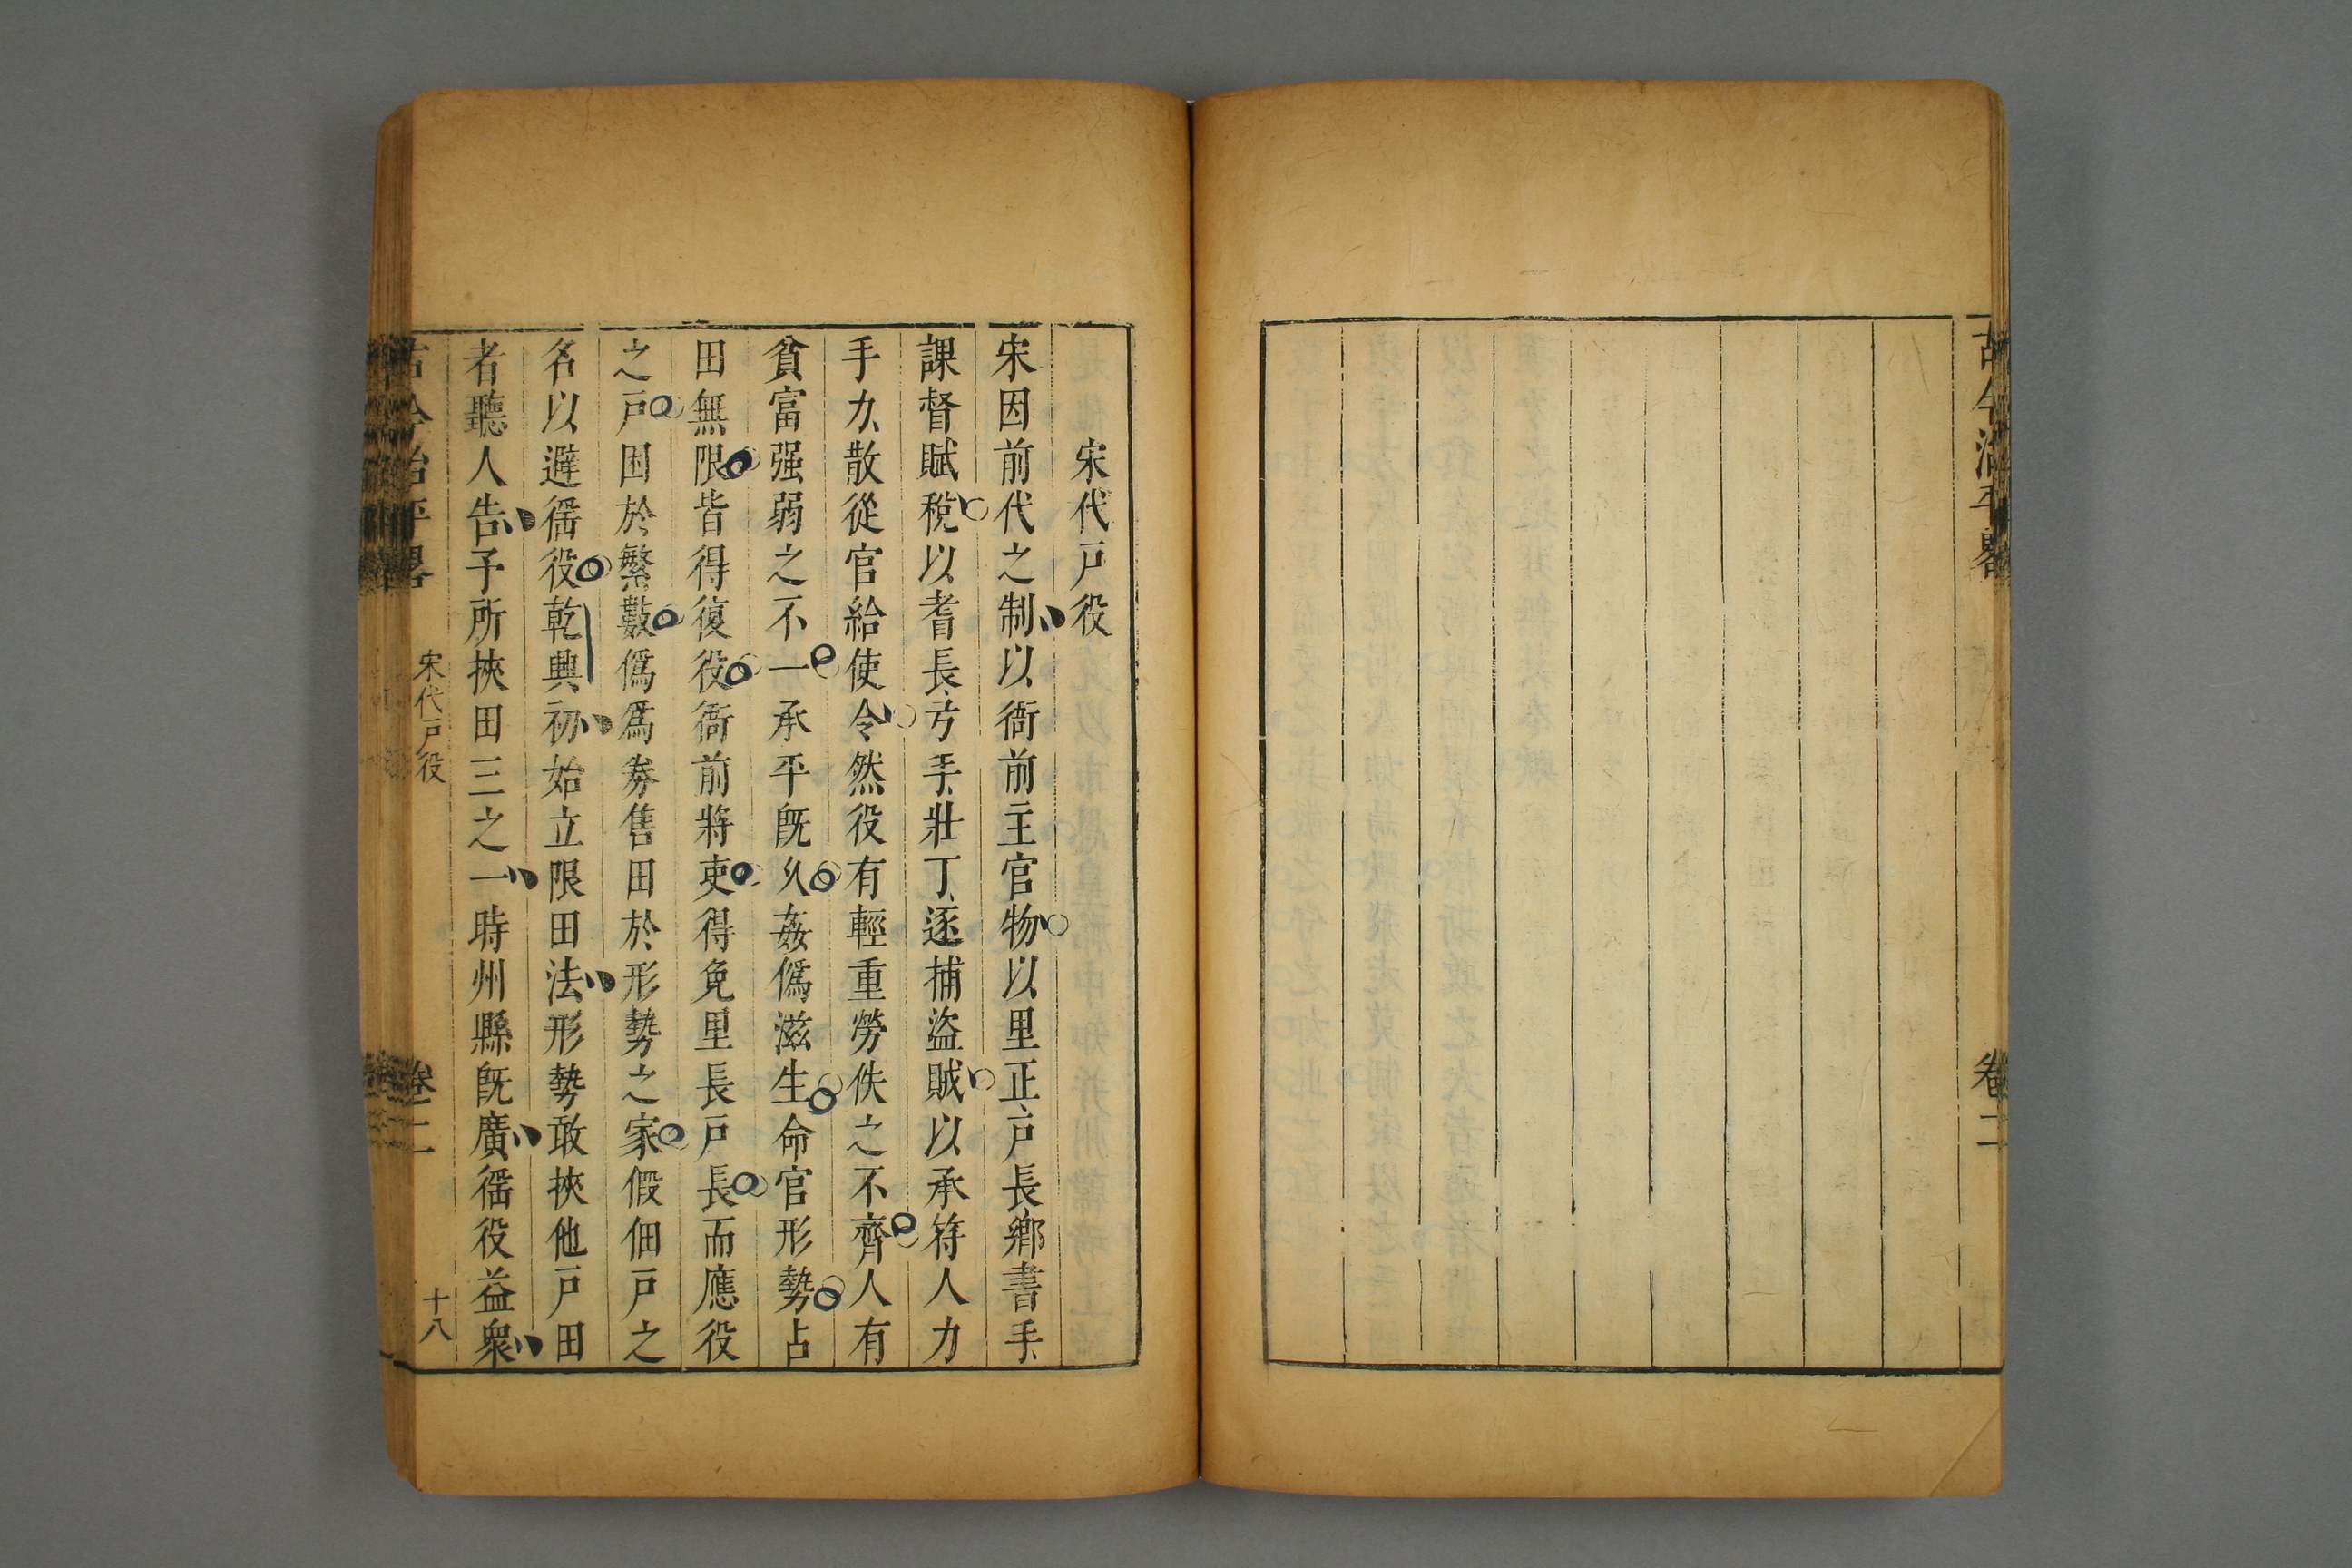 古今治平畧
卷二
宋代戸役
宋因前代之制以衙前主官物以里正戸長鄉書手
課督賦稅以耆長方手壯丁逐捕盜賊以承符人力
手力散從官給使令然役有輕重勞佚之不齊人有
貧富强弱之不一承平旣久姦僞滋生命官形勢占
田無限皆得復役衙前將吏得免里長戸長而應役
之戸困於繁數僞爲券售田於形勢之家假佃戸之
名以避徭役乾興初始立限田法形勢敢挾他戸田
者聽人告予所挾田三之一時州縣旣廣徭役益衆
古今治平畧
宋代戸役
卷二
十八